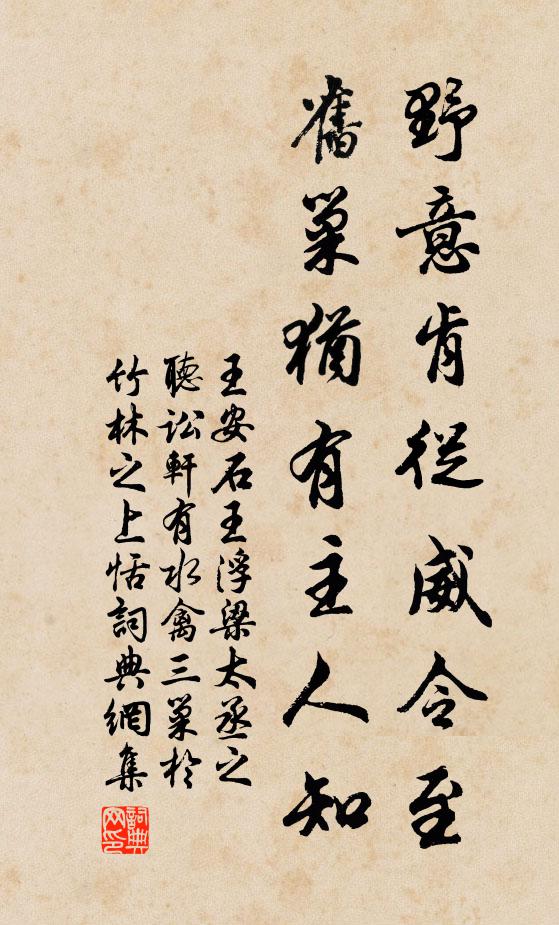 野意肯從威令至
舊巢猶有主人知
王安石王浮梁太丞之
聽訟軒有水禽三巢於
竹林之上恬詞典網集
詞典
网印